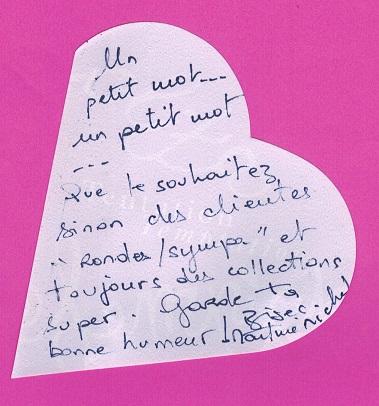 Un
petit mot...
un petit mot
...
Que te souhaitez,
sinon des clientes
"Rondes/sympa" et
toujours des collections
super. Garde ta
bonne humeur !
Martine Michel